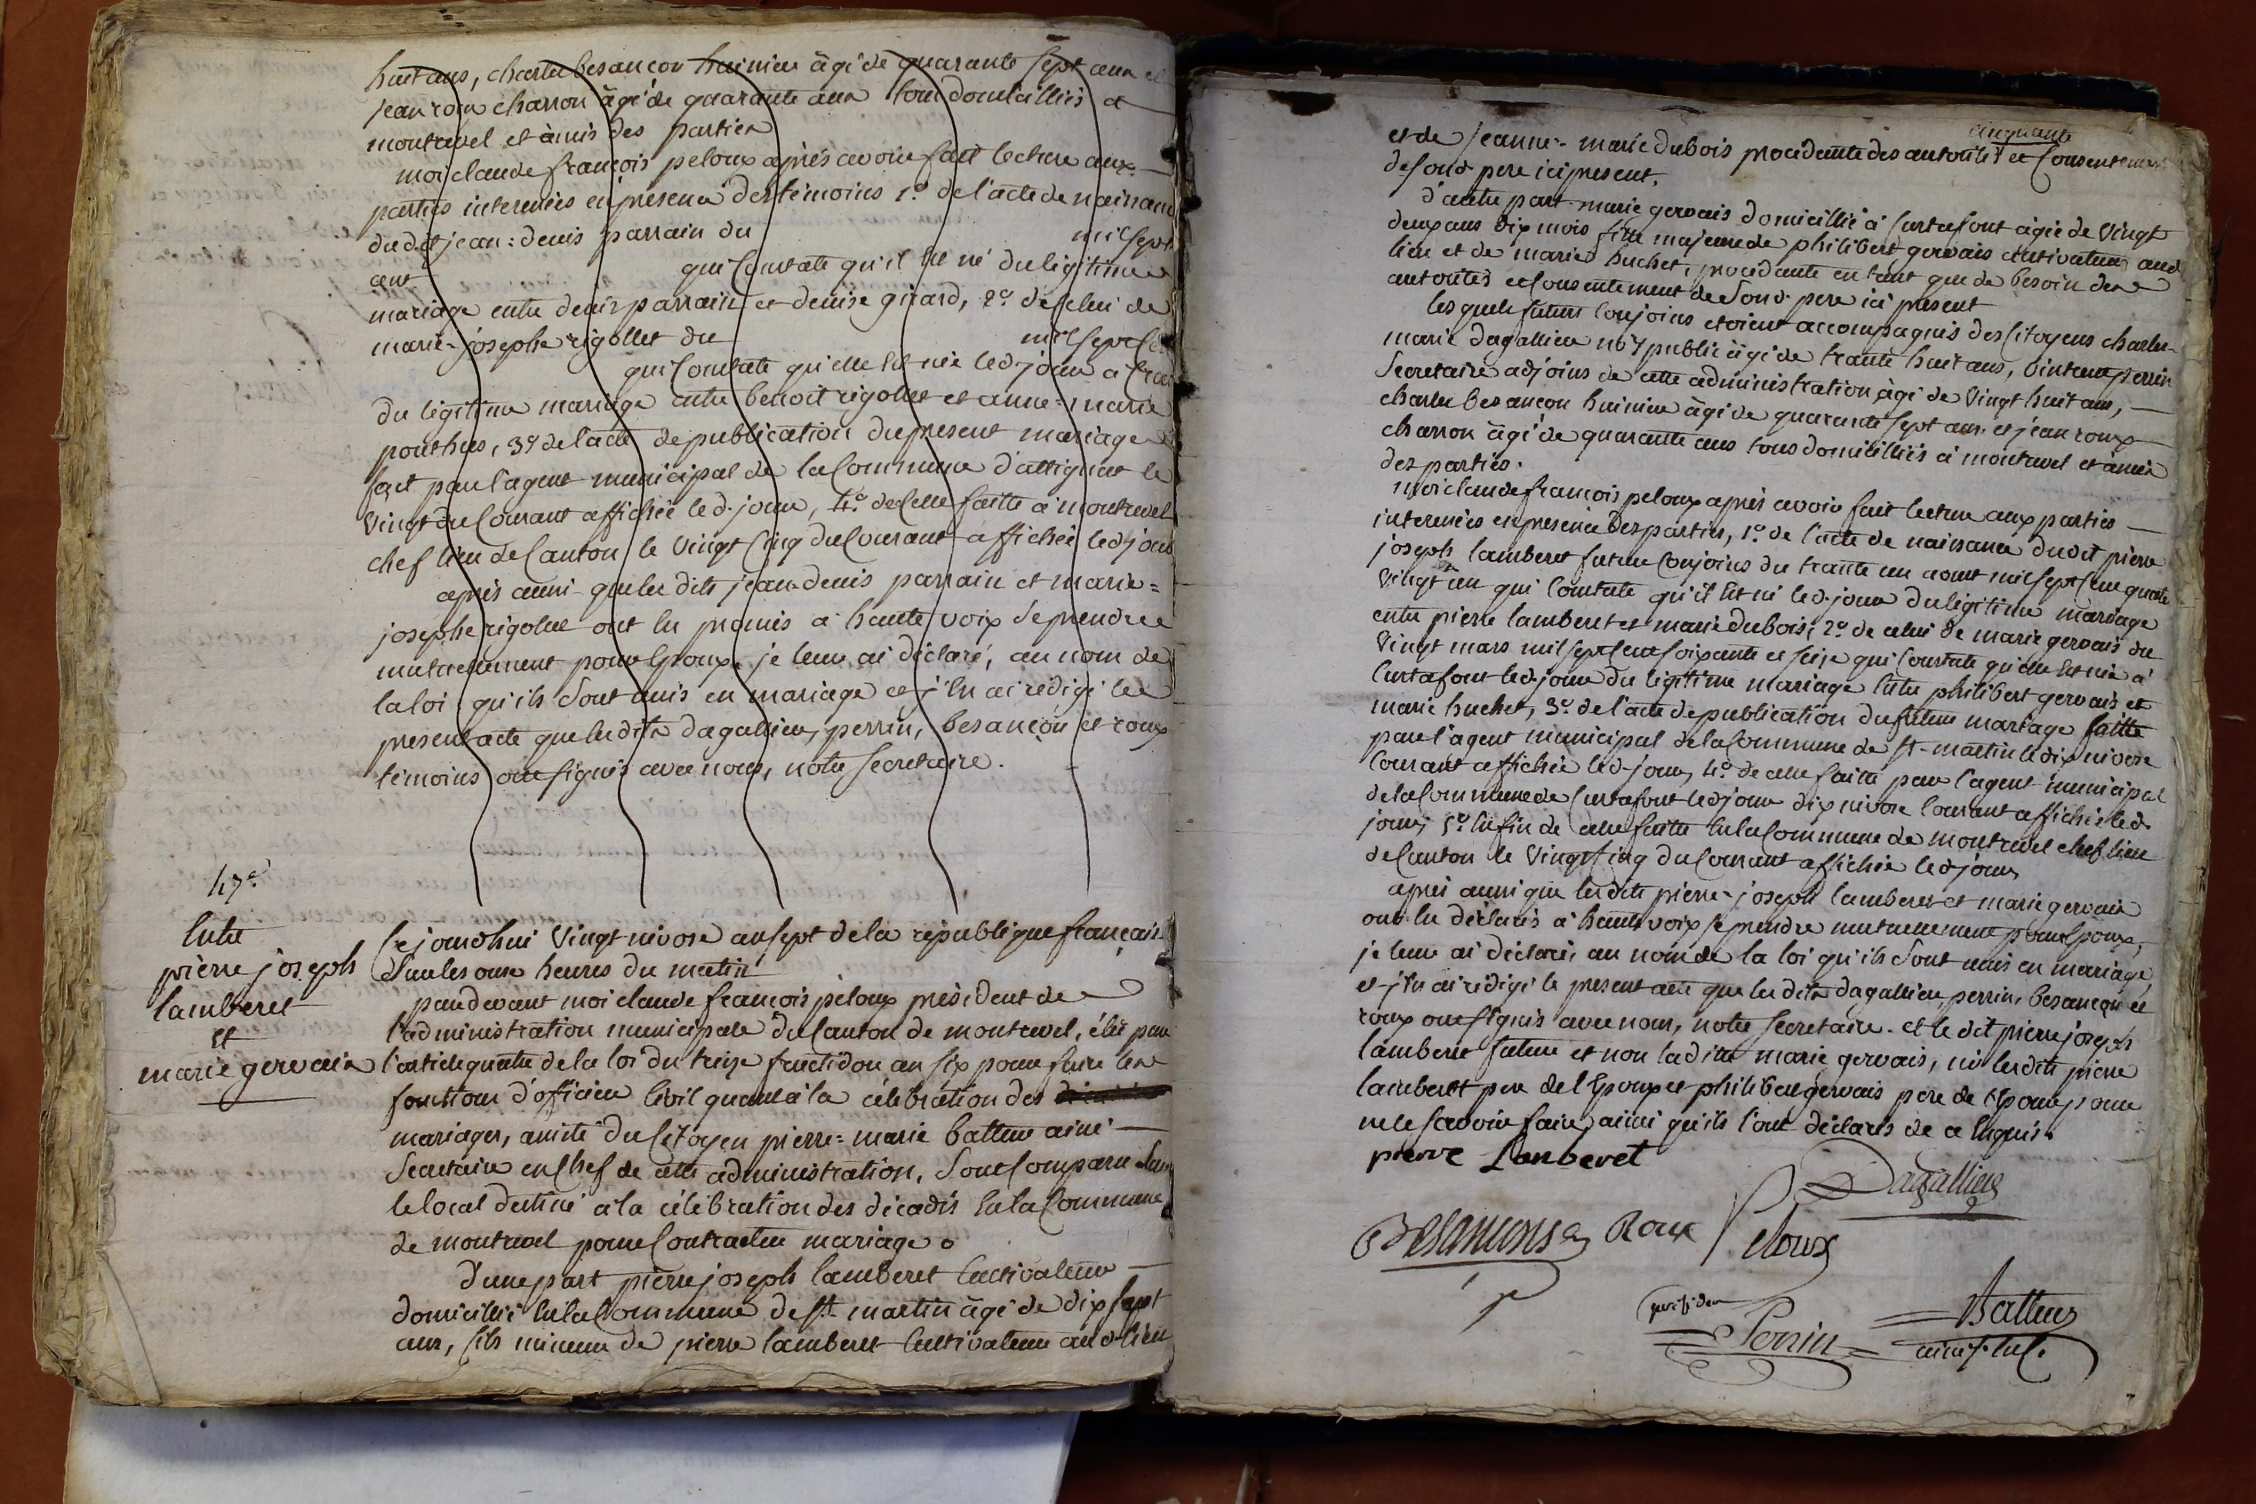 huit ans, charles besançon huissier âgé de quarante sept ans et
jean roux charron âgé de quarante ans tous domicilliés a
montrevel et amis des parties
moi claude françois peloux après avoir fait lecture aux
parties interessées en présence des témoins 1.º de l'acte de naissance
dudit jean=denis parrain du mil sept
cent qui Constate qu'il Est né du légitime
mariage entre denis parrain et denise girard, 2.º de Celui de
marie-josephe rigollet du mil sept Cent
qui Constate qu'elle Est née led. jour a
du légitime mariage entre benoit rigollet et anne=marie
pouthus, 3.º de l'acte de publication du present mariage
fait par l'agent municipal de la Commune d'attignat le
Vingt du Courant affichée led. jour, 4.º de Celle faitte a montrevel
chef lieu de Canton le Vingt Cinq du Courant affichée led. jour
après aussi que les dits jean-denis parrain et marie=
josephe rigollet ont Eu promis a haute voix de prendre
mutuellement pour Epoux, je leur ai déclaré, au nom de
la loi qu'ils Sont unis en mariage et j'En ai redigé le
present acte que les dits dagallier, perrin, besançon et roux
témoins ont signés avec nous, notre Secretaire.
47.e
Entre
pierre joseph
lamberet
et
marie gervais
Cejourdhui Vingt nivose an sept de la république française
Sur les onze heures du matin
pardevant moi claude françois peloux président de
l'administration municipale du Canton de montrevel, élu par
l'article quatre de la loi du treize fructidor an six pour faire les
fonctions d'officier Civil quant à la célébration des
mariages, assisté du Citoyen pierre=marie batteur ainé
Secretaire en Chef de cette administration, Sont Comparus dans
le local destiné a la célébration des décadis En la Commune
de montrevel pour Contracter mariage
d'une part pierre joseph lamberet Cultivateur
domicillié En la Commune de St. martin âgé de dix sept
ans, fils mineur de pierre lamberet Cultivateur aud. lieu
cinquante
et de jeanne-marie dubois procédante des autorités et Consentement
de sond. pere ici present.
d'autre part marie gervais domicilliée à Curtafont âgée de Vingt
deux ans dix mois fille majeure de philibert gervais cultivateur aud.
lieu et de marie huchet, procédante en tant que de besoin des
autorités et Consentement de Sond. pere ici présent
les quels futurs Conjoins etoient accompagnés des Citoyens charles-
marie dagallier not. public âgé de trante huit ans, perrin
Secretaire adjoins de cette administration âgé de Vingt huit ans,
charles besançon huissier âgé de quarante sept ans et jean roux
charron âgé de quarante ans tous domicilliés à montrevel et amis
des parties.
moi claude françois peloux après avoir fait lecture aux parties
interessées en présence des parties, 1.º de l'acte de naissance dudit pierre
joseph lamberet futur Conjoins du trante un aout mil sept Cent quatre
Vingt un qui Constate qu'il Est né led. jour du légitime mariage
entre pierre lamberet et marie dubois, 2.º de celui de marie gervais du
Vingt mars mil sept Cent soixante et seize qui Constate qu'elle Est née à
Curtafont led. jour du légitime mariage Entre philibert gervais et
marie huchet, 3.º de l'acte de publication du futur mariage faitte
par l'agent municipal de la Commune de St-martin le dix nivose
Courant affichée led. jour, 4.º de celle faitte par l'agent municipal
de la Commune de Curtafont led. jour dix nivose Courant affichée led.
jour, 5.º Enfin de celle faitte En la Commune de montrevel chef lieu
de Canton le Vingt Cinq du Courant affichée led. jour
après aussi que les dits pierre-joseph lamberet et marie gervais
ont Eu déclarés a haute voix se prendre mutuellement pour Epoux,
je leur ai déclaré, au nom de la loi qu'ils Sont unis en mariage
et j'En ai redigé le present acte que les dits dagallier, perrin, besançon et
roux ont signés avec nous, notre Secretaire. et le dit pierre joseph
lamberet futur et non ladite marie gervais, ni les dits pierre
lamberet pere de l'Epoux et philibert gervais pere de l'Epouse pour
ne le scavoir faire, ainsi qu'ils l'ont déclarés de ce Enquis.
pierre Lanberet
Dagallier
Besançon Roux Peloux
président
Perrin
Batteur
ainé